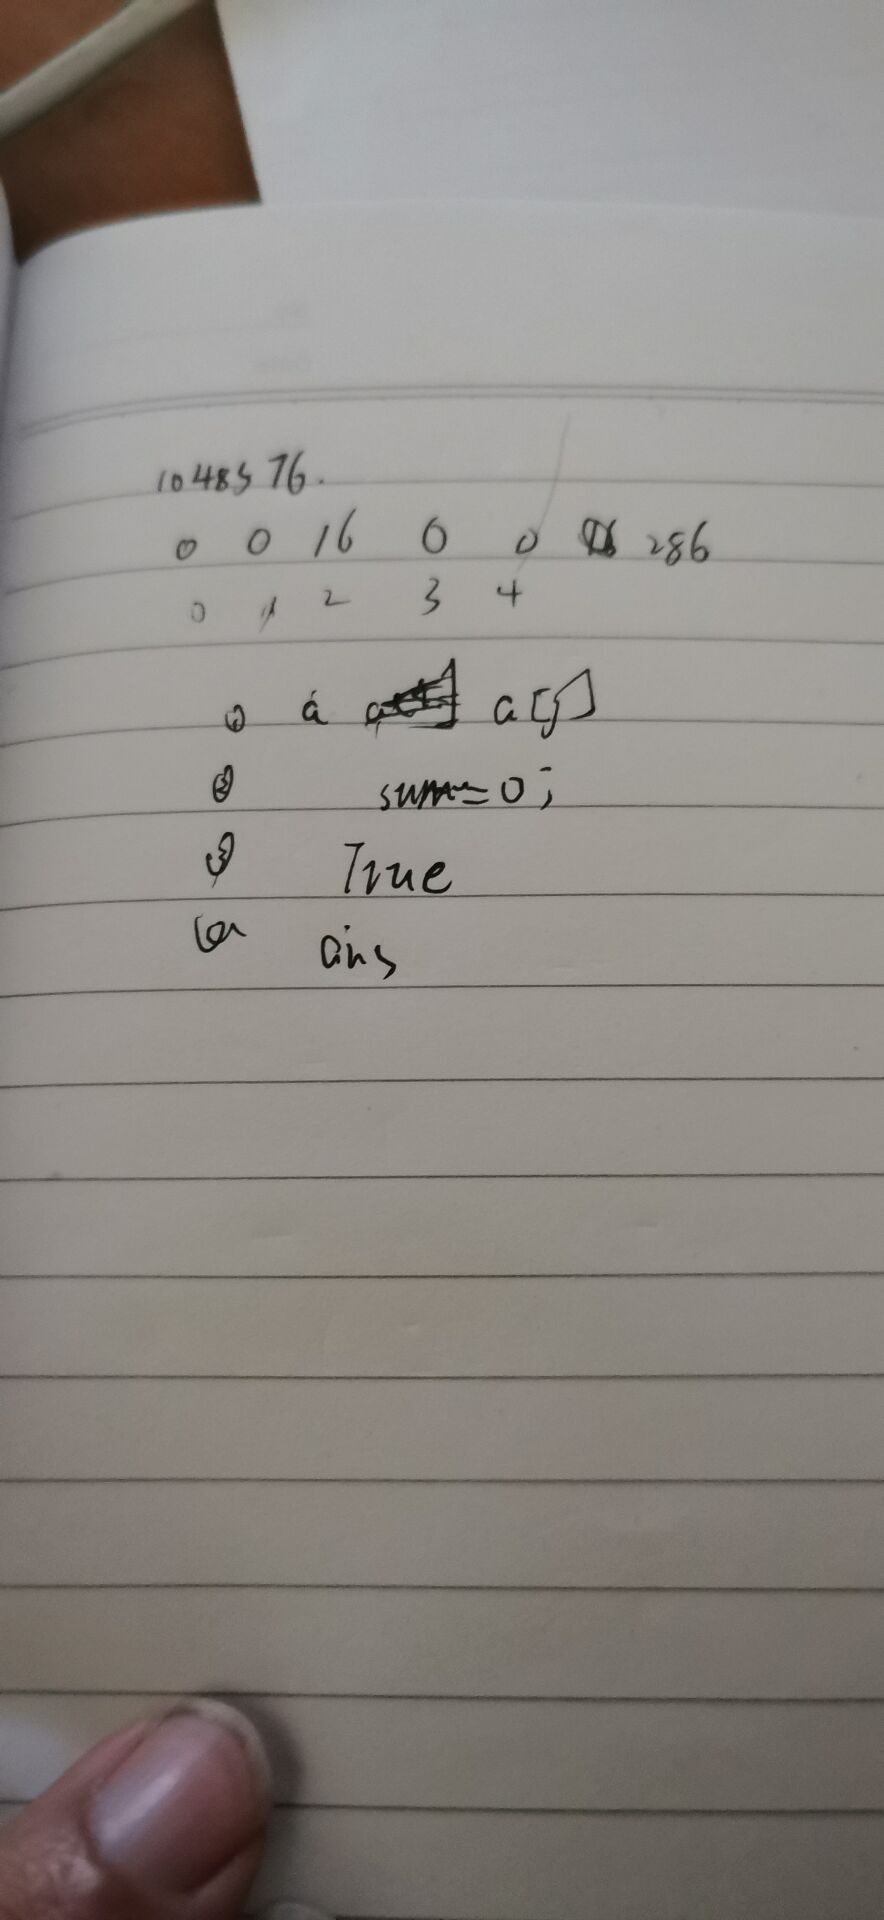 1048576.
0 0 16 0 0 286
0 1 2 3 4
① a a[j]
② sum=0;
③ True
④ ans